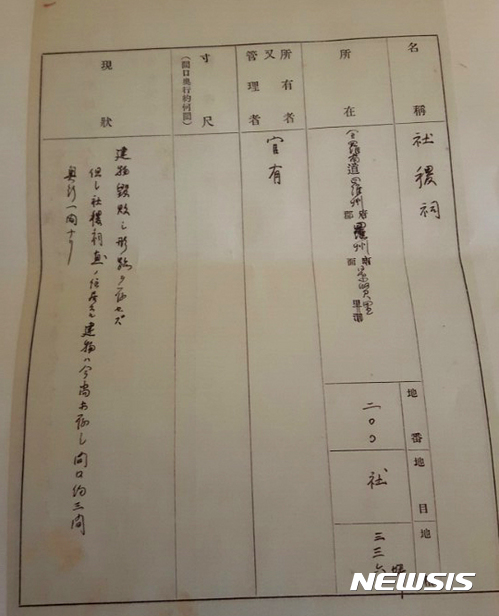 名稱
社稷祠
所在
全羅南道羅州郡羅州面
地番
二〇〇
地目
社
地
三三
所有者又管理者
官有
寸尺
(間口奥行約何間)
現狀
建物毀敗シ形跡ヲ存セズ
但シ社稷祠直ノ住居セル建物ハ今尚存シ間口約三間
奥行一間ナリ
NEWSIS